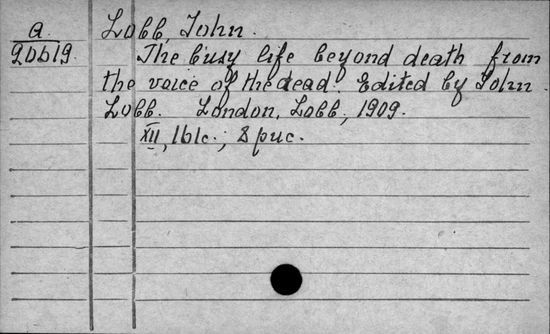 a
20619
Lobb, John.
The busy life beyond death from
the voice of the dead. Edited by John
Lobb. London, Lobb, 1909.
XII, 161c.; 8 рис.